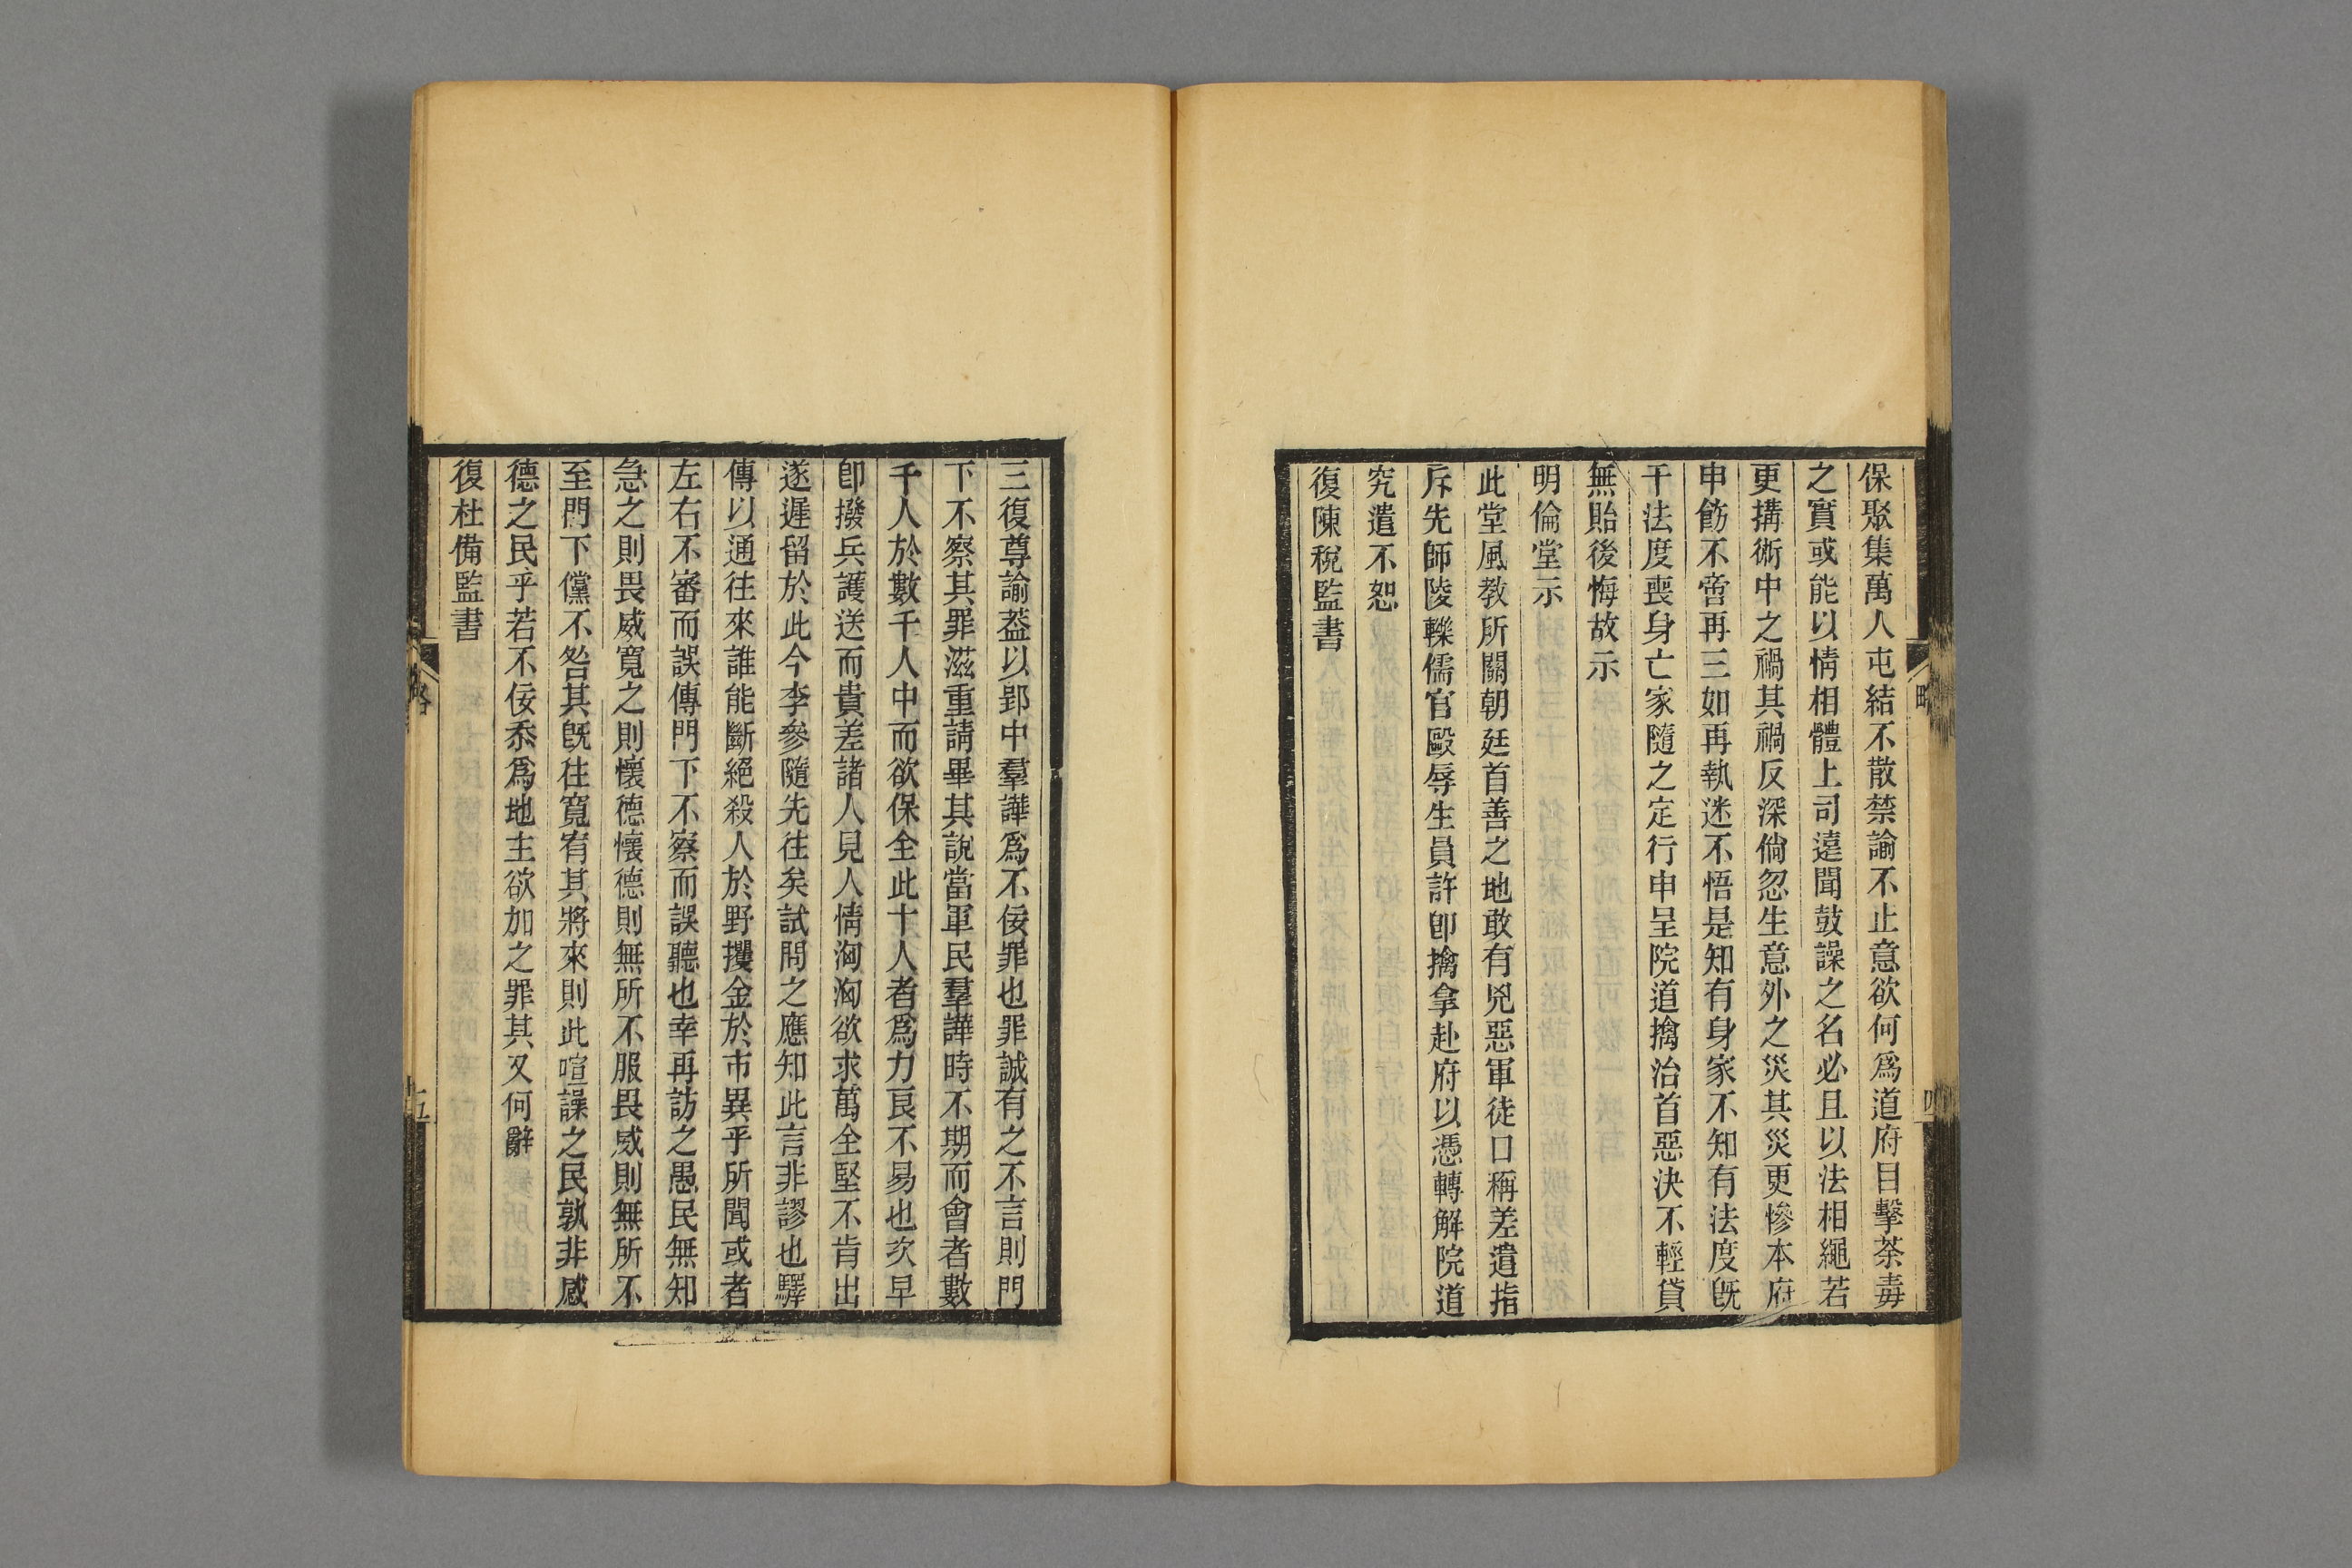 保聚集萬人屯結不散禁諭不止意欲何爲道府目擊荼毒
之實或能以情相體上司遠聞鼓譟之名必且以法相繩若
更搆術中之禍其禍反深倘忽生意外之災其災更慘本府
申飭不啻再三如再執迷不悟是知有身家不知有法度旣
干法度喪身亡家隨之定行申呈院道擒治首惡決不輕貸
無貽後悔故示
明倫堂示
此堂風教所關朝廷首善之地敢有兇惡軍徒口稱差遣指
斥先師陵轢儒官毆辱生員許卽擒拿赴府以憑轉解院道
究遣不恕
復陳稅監書
三復尊諭葢以郢中羣譁爲不佞罪也罪誠有之不言則門
下不察其罪滋重請畢其說當軍民羣譁時不期而會者數
千人於數千人中而欲保全此十人者爲力良不易也次早
卽撥兵護送而貴差諸人見人情洶洶欲求萬全堅不肯出
遂遲留於此今李參隨先往矣試問之應知此言非謬也驛
傳以通往來誰能斷絕殺人於野攫金於市異乎所聞或者
左右不審而誤傳門下不察而誤聽也幸再訪之愚民無知
急之則畏威寬之則懷德懷德則無所不服畏威則無所不
至門下儻不咎其旣往寬宥其將來則此喧譟之民孰非感
德之民乎若不佞忝爲地主欲加之罪其又何辭
復杜備監書
略
十五